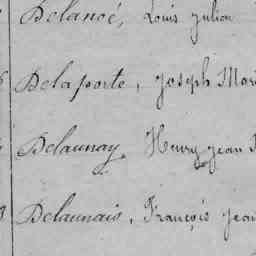 Delanoé, Louis Julien
Delaporte, Joseph Mari
Delaunay, Henry Jean
Delaunais, François Jean